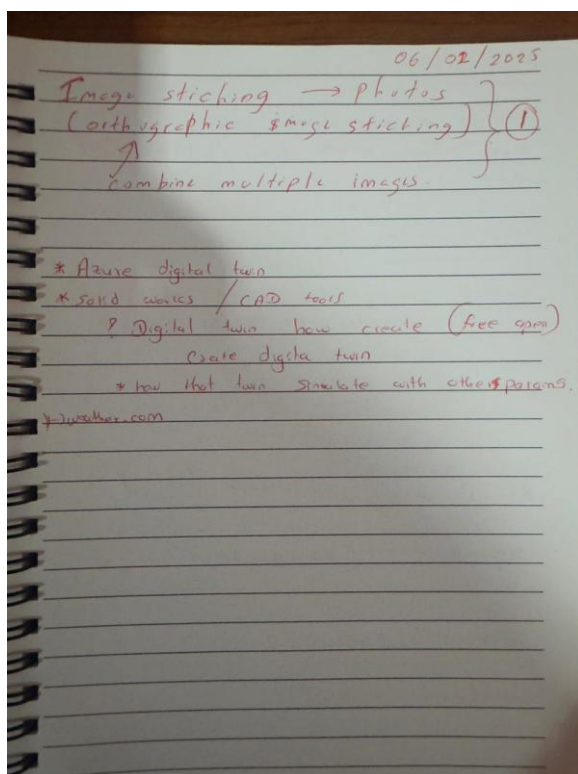 06/02/2025
Image stiching → photos
(orthographic image stiching) ①
combine multiple images.
* Azure digital twin
* Solid works / CAD tools
? Digital twin how create (free open)
Create digital twin
* how that twin simulate with other params.